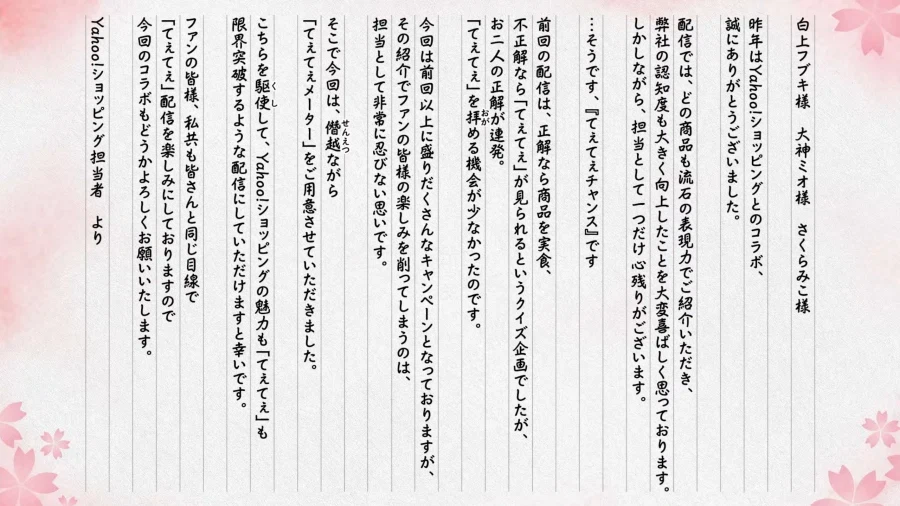 白上フブキ様　大神ミオ様　さくらみこ様
昨年はYahoo!ショッピングとのコラボ、
誠にありがとうございました。
配信では、どの商品も流石の表現力でご紹介いただき、
弊社の認知度も大きく向上したことを大変喜ばしく思っております。
しかしながら、担当として一つだけ心残りがございます。
…そうです、『てぇてえチャンス』です
前回の配信は、正解なら商品を実食、
不正解なら「てぇてぇ」が見られるというクイズ企画でしたが、
お二人の正解が連発。
「てぇてえ」を拝める機会が少なかったのです。
今回は前回以上に盛りだくさんなキャンペーンとなっておりますが、
その紹介でファンの皆様の楽しみを削ってしまうのは、
担当として非常に忍びない思いです。
そこで今回は、僭越ながら
「てぇてぇメーター」をご用意させていただきました。
こちらを駆使して、Yahoo!ショッピングの魅力も「てぇてぇ」も
限界突破するような配信にしていただけますと幸いです。
ファンの皆様、私共も皆さんと同じ目線で
「てぇてぇ」配信を楽しみにしておりますので
今回のコラボもどうかよろしくお願いいたします。
Yahoo!ショッピング担当者　より